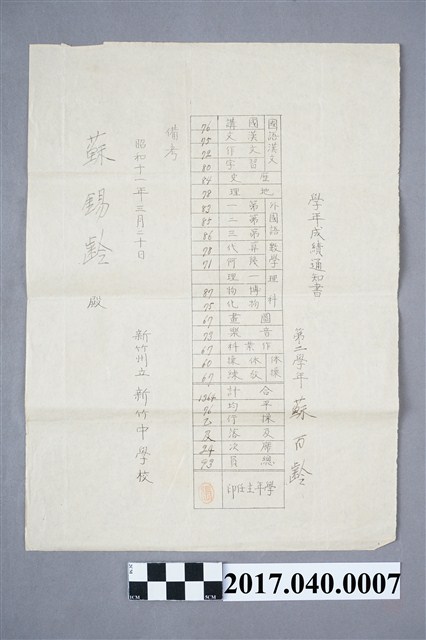 學年成績通知書
第二學年 蘇百齡
國語漢文 國 講 76
漢文 文 75
文 作 72
習 字 80
歷 史 84
地 理 78
外國語 第一 83
第二 85
第三 86
數學 算代 78
幾何 71
理科 一 理
博物 87
物化 75
圖 畫 67
音 樂 73
作 業 科 67
體操 體操 60
教練 67
合 計 1364
平 均 76
操 行 乙
及 落 及
席 次 24
總 員 93
學年主任印
新竹州立 新竹中學校
備考
昭和十一年三月二十日
蘇錫齡 殿
CM
2017.040.0007